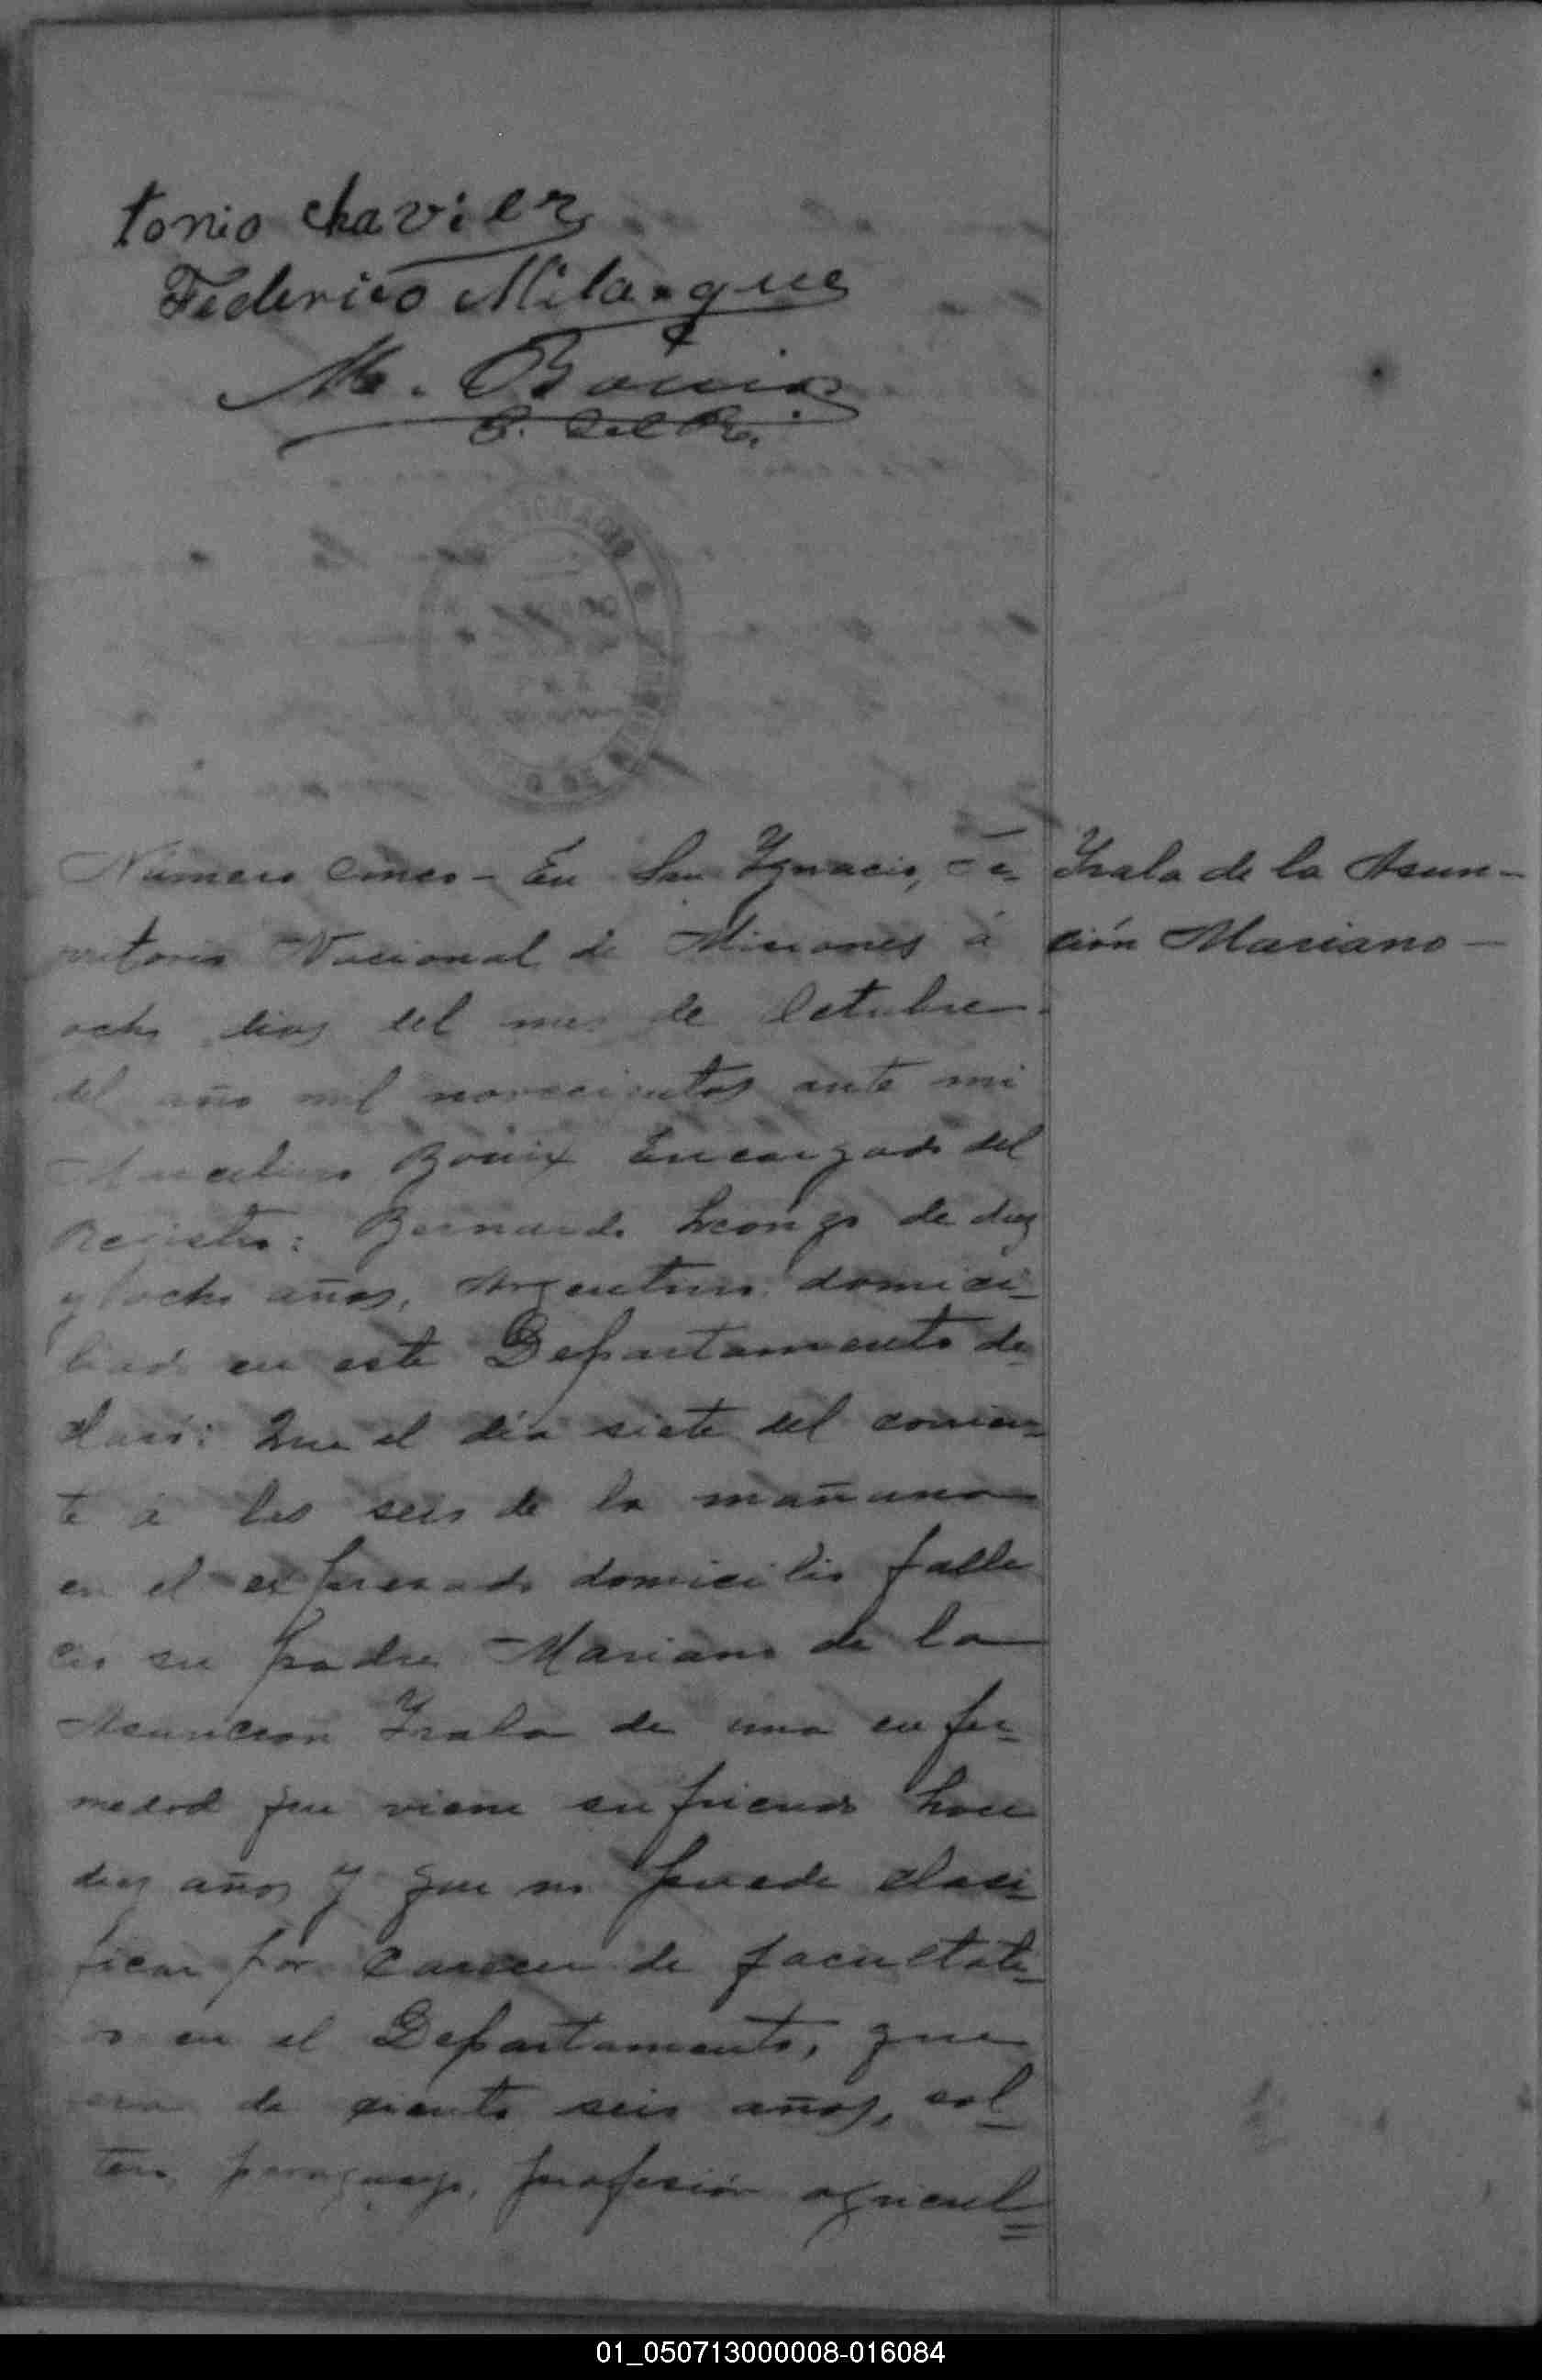 tonio chavier
Federico Milarque
M. Bouix
E. del R.
Número Cinco - En San Ignacio, Te
rritorio Nacional de Misiones á
ocho dias del mes de Octubre
del año mil novecientos ante mi
Marcelino Bouix Encargado del
Registro: Bernardo de diez
y ocho años, Argentino domici-
liado en este Departamento de-
claró: Que el día siete del corrien-
te á las seis de la mañana
en el expresado domicilio falle
ció su padre Mariano de la
Asuncion Yrala de una enfer-
medad que viene sufriendo hace
diez años y que no puede clasi-
ficar por carecer de facultati-
vo en el Departamento, que
era de ciento seis años, sol-
tero, paraguayo, profesión agricul=
Yrala de la Asun-
ción Mariano -
01_050713000008-016084